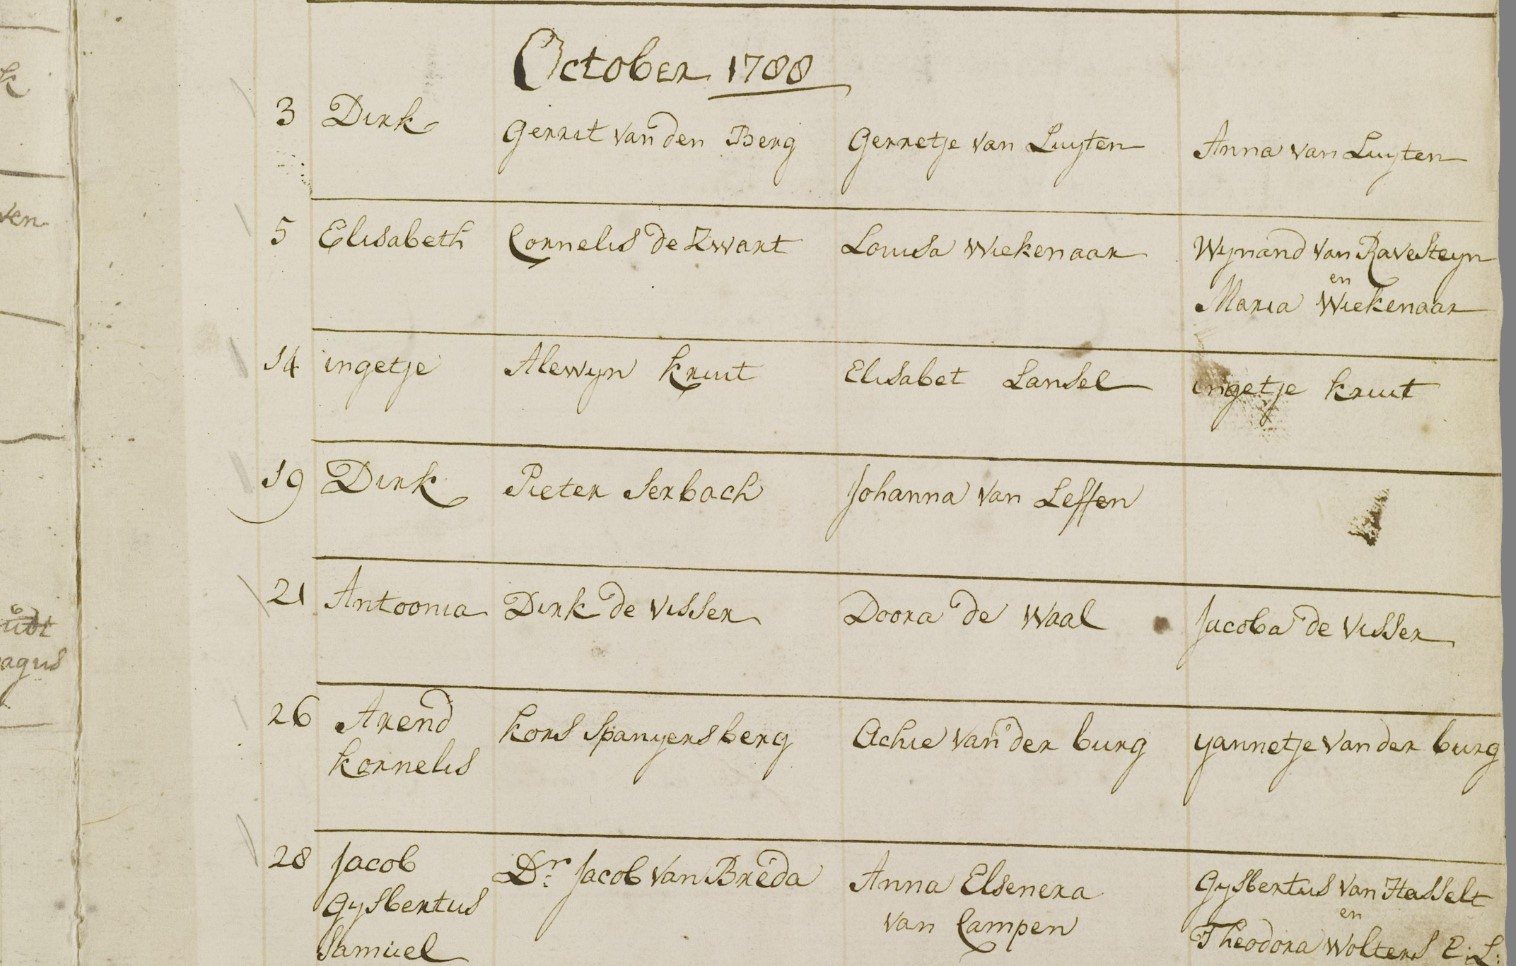 October 1788
3 Dirk Gerrit van den Berg Gerretje van Luyten Anna van Luyten
5 Elisabeth Cornelis de Zwart Louisa Wiekenaar Wynand van Ravesteyn
en
Maria Wiekenaar
14 ingetje Alewyn kruit Elisabet Lansel ingetje kruit
19 Dirk Pieter Serbach Johanna van Leffen
21 Antoonia Dirk de Visser Doora de Waal Jacoba de Visser
26 Arend kors Spanyersberg Achie van der burg yannetje van der burg
kornelis
28 Jacob Dr. Jacob van Breda Anna Elsenera Gysbertus van Hasselt
Gysbertus van Campen en
Samuel Theodora Wolters E: L:
ven
agus